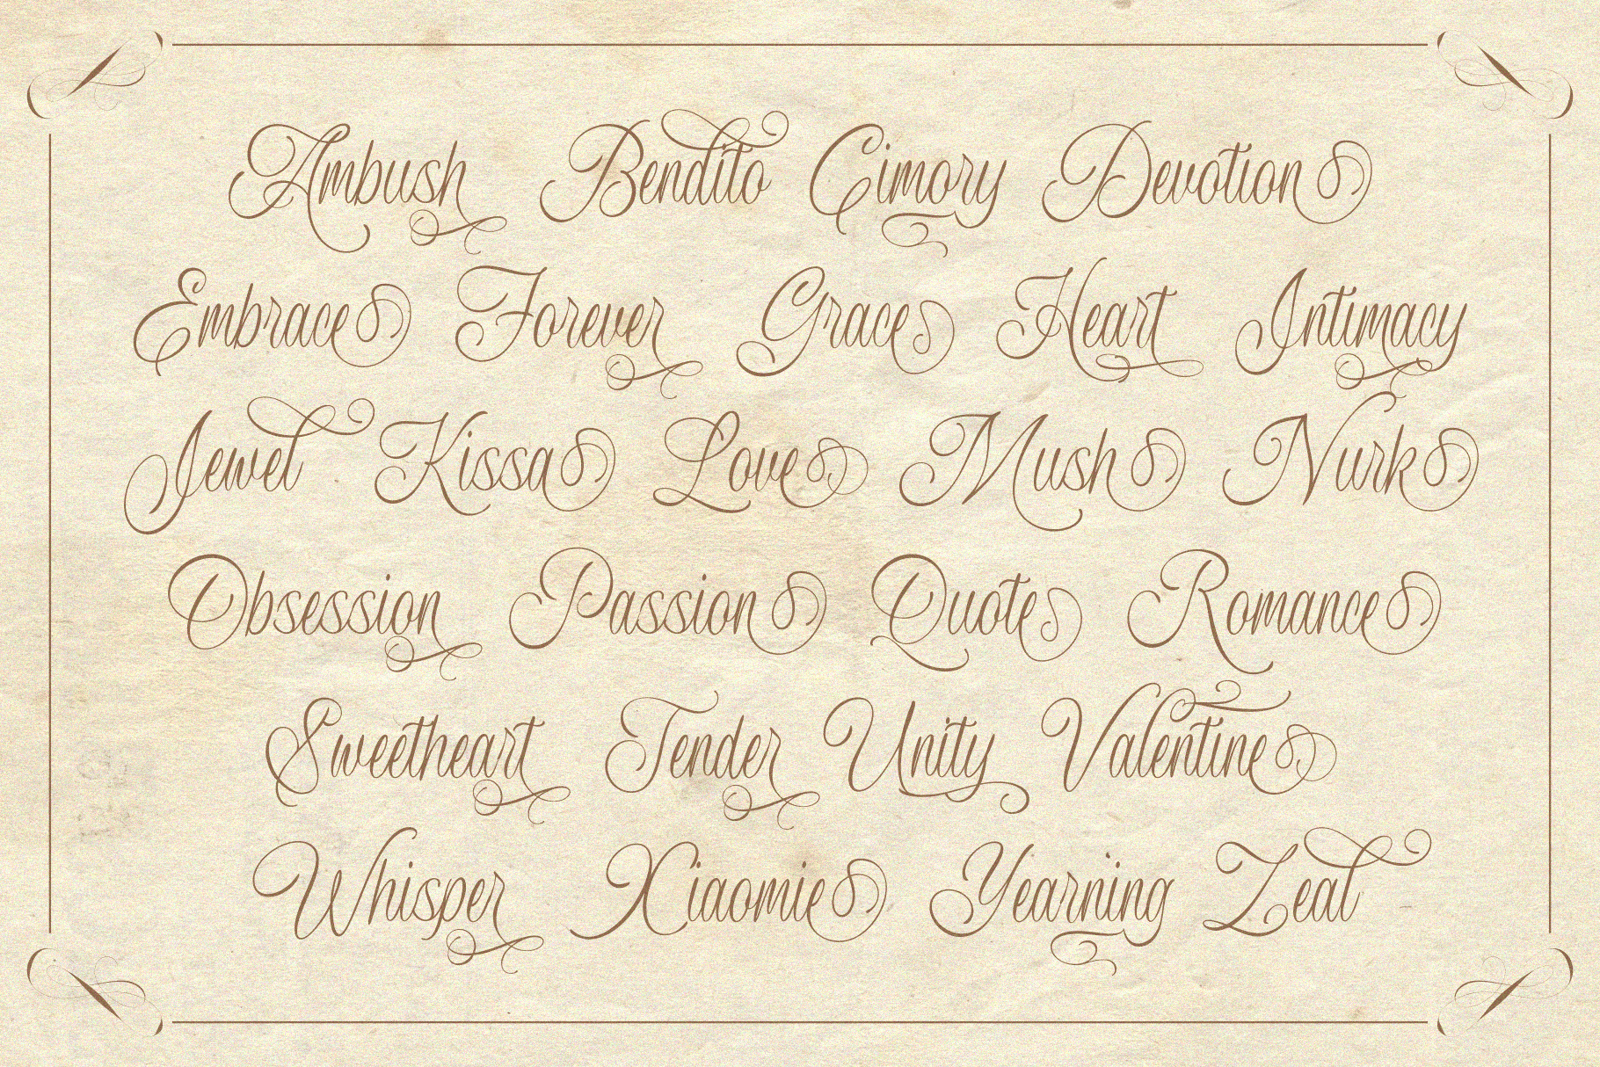 Ambush Bendito Cimory Devotion
Embrace Forever Grace Heart Intimacy
Jewel Kissa Love Mush Nurk
Obsession Passion Quote Romance
Sweetheart Tender Unity Valentine
Whisper Xiaomie Yearning Zeal